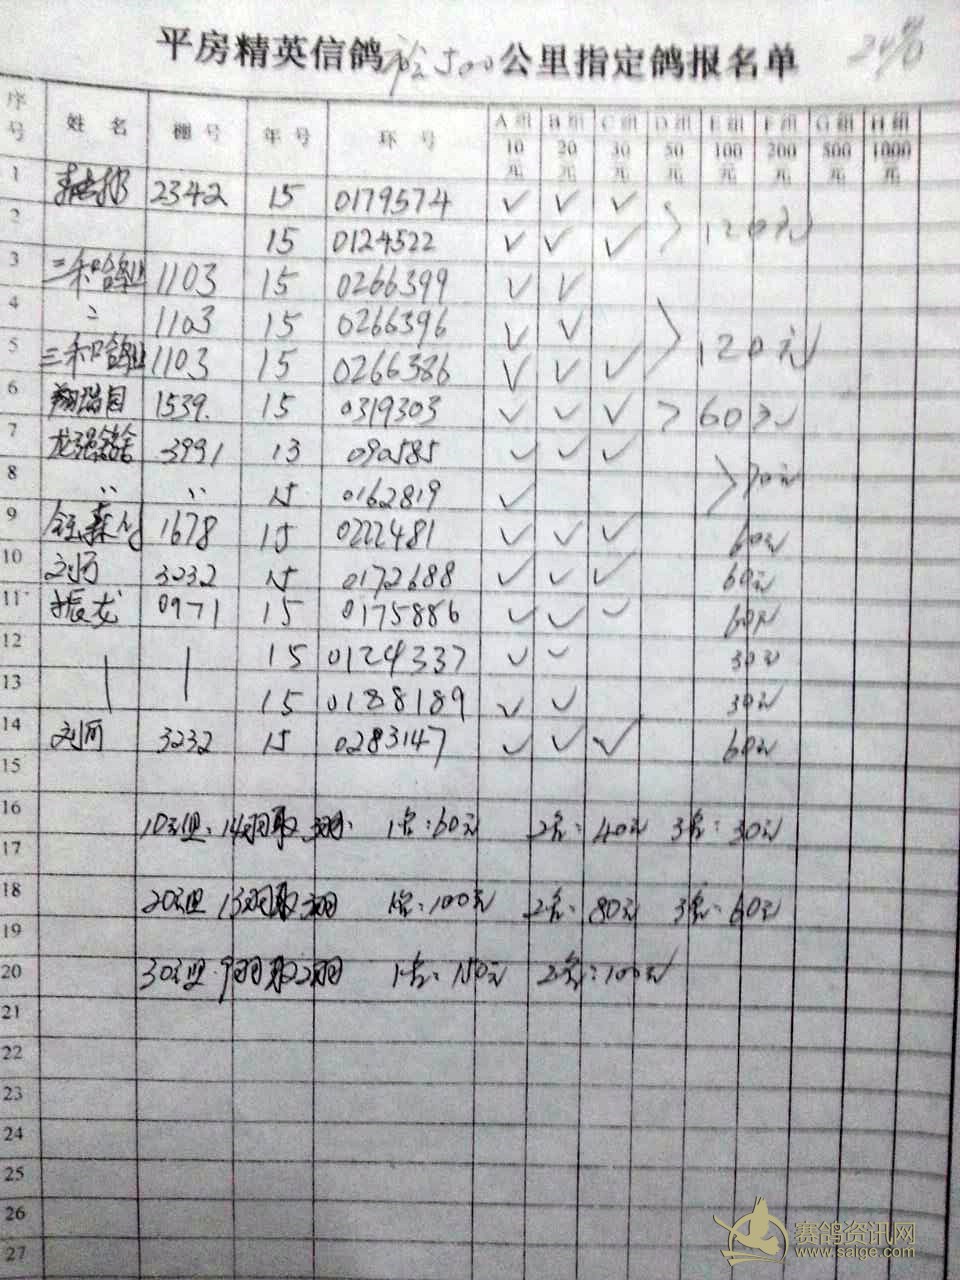 平房精英信鸽 500公里指定鸽报名单
序号 姓名 棚号 年号 环号 A组10元 B组20元 C组30元 D组50元 E组100元 F组200元 G组500元 H组1000元
1 2342 15 0179574 ✓ ✓ ✓
2 15 0124522 ✓ ✓ ✓ 120元
3 三和鸽业 1103 15 0266399 ✓ ✓
4 〃 1103 15 0266396 ✓ ✓ 120元
5 三和鸽业 1103 15 0266386 ✓ ✓ ✓
6 翔瑞园 1539. 15 0319303 ✓ ✓ ✓ 60元
7 3991 13 090585 ✓ ✓ ✓
8 〃 〃 15 0162819 ✓ 70元
9 1678 15 0222481 ✓ ✓ ✓ 60元
10 3232 15 0172688 ✓ ✓ ✓ 60元
11 振龙 0971 15 0175886 ✓ ✓ ✓ 60元
12 15 0124337 ✓ ✓ 30元
13 15 0188189 ✓ ✓ 30元
14 3232 15 0283147 ✓ ✓ ✓ 60元
15
16 10元组:14羽取3羽. 1名:60元 2名:40元 3名:30元
17
18 20元组 13羽取3羽 1名:100元 2名:80元 3名:60元
19
20 30元组.9羽取2羽 1名:150元 2名:100元
21
22
23
24
25
26
27
赛鸽资讯网
www.saige.com